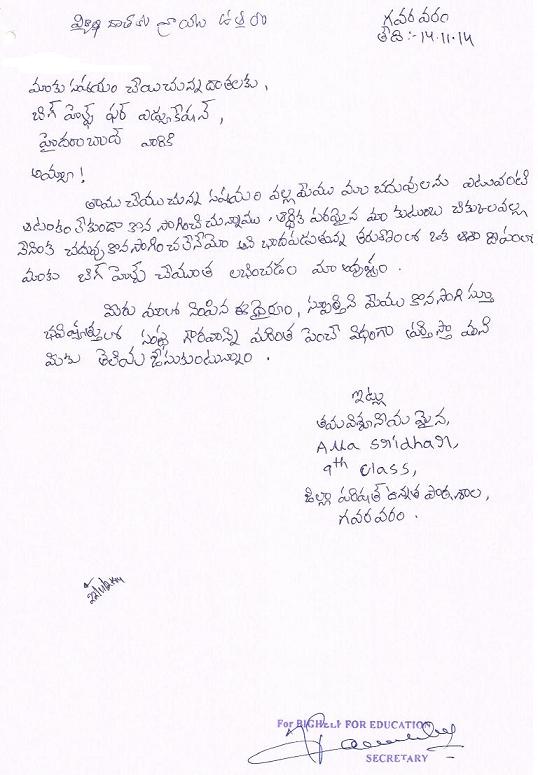 విద్యార్థి దాతకు వ్రాయు ఉత్తరం
గవరవరం
తేది:- 14.11.14
మాకు సహాయం చేయుచున్న దాతలకు,
బిగ్ హెల్ప్ ఫర్ ఎడ్యుకేషన్,
హైదరాబాద్ వారికి
అయ్యా!
తాము చేయుచున్న సహాయం వల్ల మేము మా చదువులను ఎటువంటి
ఆటంకం లేకుండా కొనసాగించుచున్నాము. ఆర్థిక పరమైన మా కుటుంబ చిక్కులవల్ల
చదువు కొనసాగించలేనేమో అని బాధపడుతున్న తరుణంలో ఒక ఆశా దీపంలా
మాకు బిగ్ హెల్ప్ చేయూత లభించడం మా అదృష్టం.
మీరు మాలో నింపిన ఈ ధైర్యం, స్ఫూర్తిని మేము కొనసాగిస్తూ
భవిష్యత్తులో సంస్థ గౌరవాన్ని మరింత పెంచే విధంగా మని
మీకు తెలియజేసుకుంటున్నాం.
ఇట్లు
తమ విశ్వసనీయమైన,
Alla Sridhar,
9th class,
జిల్లా పరిషత్ ఉన్నత పాఠశాల,
గవరవరం.
For BIGHELP FOR EDUCATION
SECRETARY